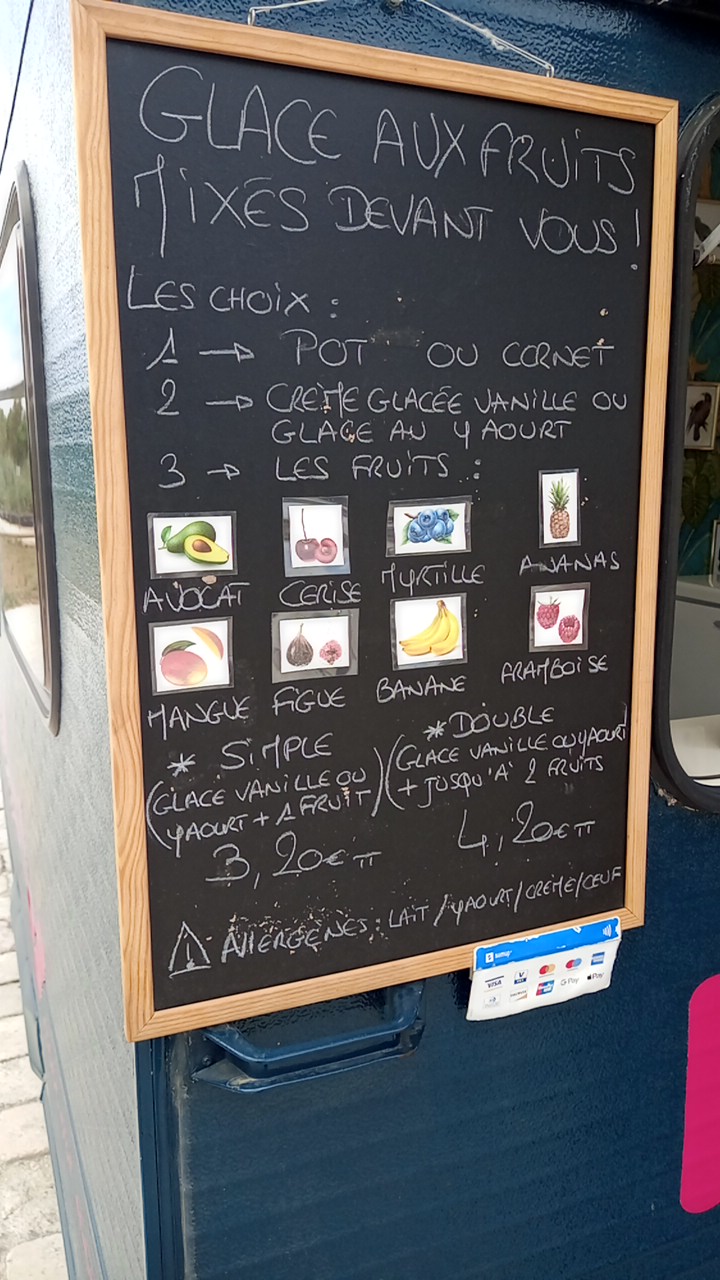 GLACE AUX FRUITS
MIXÉS DEVANT VOUS !
LES CHOIX :
1 → POT OU CORNET
2 → CRÈME GLACÉE VANILLE OU
GLACE AU YAOURT
3 → LES FRUITS :
AVOCAT CERISE MYRTILLE ANANAS
MANGUE FIGUE BANANE FRAMBOISE
* SIMPLE
(GLACE VANILLE OU
YAOURT + 1 FRUIT)
3,20€ TT
* DOUBLE
(GLACE VANILLE OU YAOURT
+ JUSQU'À 2 FRUITS
4,20€ TT
⚠ ALLERGÈNES : LAIT / YAOURT / CRÈME / OEUF
sumup
VISA
G Pay Pay